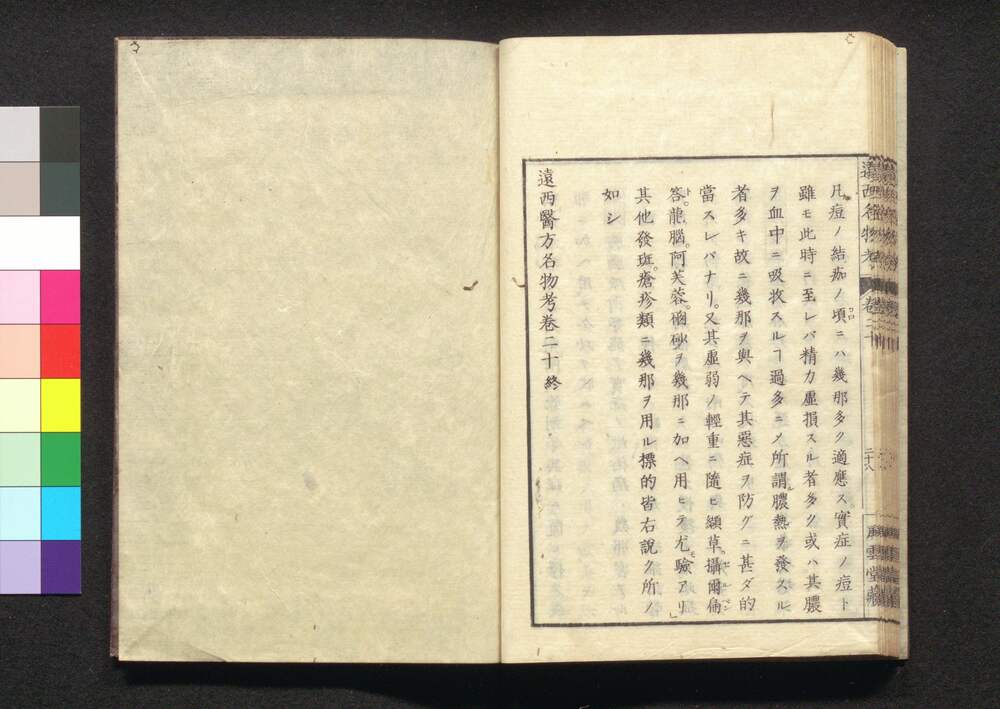 凡痘ノ結痂ノ頃ニハ幾那多ク適應ス實症ノ痘ト
雖モ此時ニ至レバ精力虛損スル者多ク或ハ其膿
ヲ血中ニ吸收スルヿ過多ニメ所謂膿熱ヲ發スル
者多キ故ニ幾那ヲ與ヘテ其惡症ヲ防グニ甚ダ的
當スレバナリ。又其虛弱ノ輕重ニ隨ヒ纈草。攝爾
答。龍腦。阿芙蓉。硇砂ヲ幾那ニ加ヘ用ヒテ尤驗アリ
其他發斑。瘡疹類ニ幾那ヲ用ル標的皆右說ク所ノ
如シ
遠西醫方名物考卷二十 終
卷二十
二十八
風雲堂藏